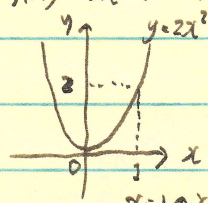 y
y=2x²
2
0
1
x